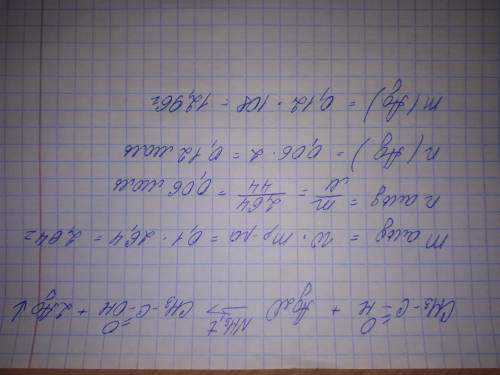 CH₃-C=O-H + Ag₂O NH₃,t→ CH₃-C=O-OH + 2Ag↓
m альд = w · m р-ра = 0,1 · 26,4 = 2,64 г
n альд = m/M = 2,64/44 = 0,06 моль
n(Ag) = 0,06 · 2 = 0,12 моль
m(Ag) = 0,12 · 108 = 12,96 г